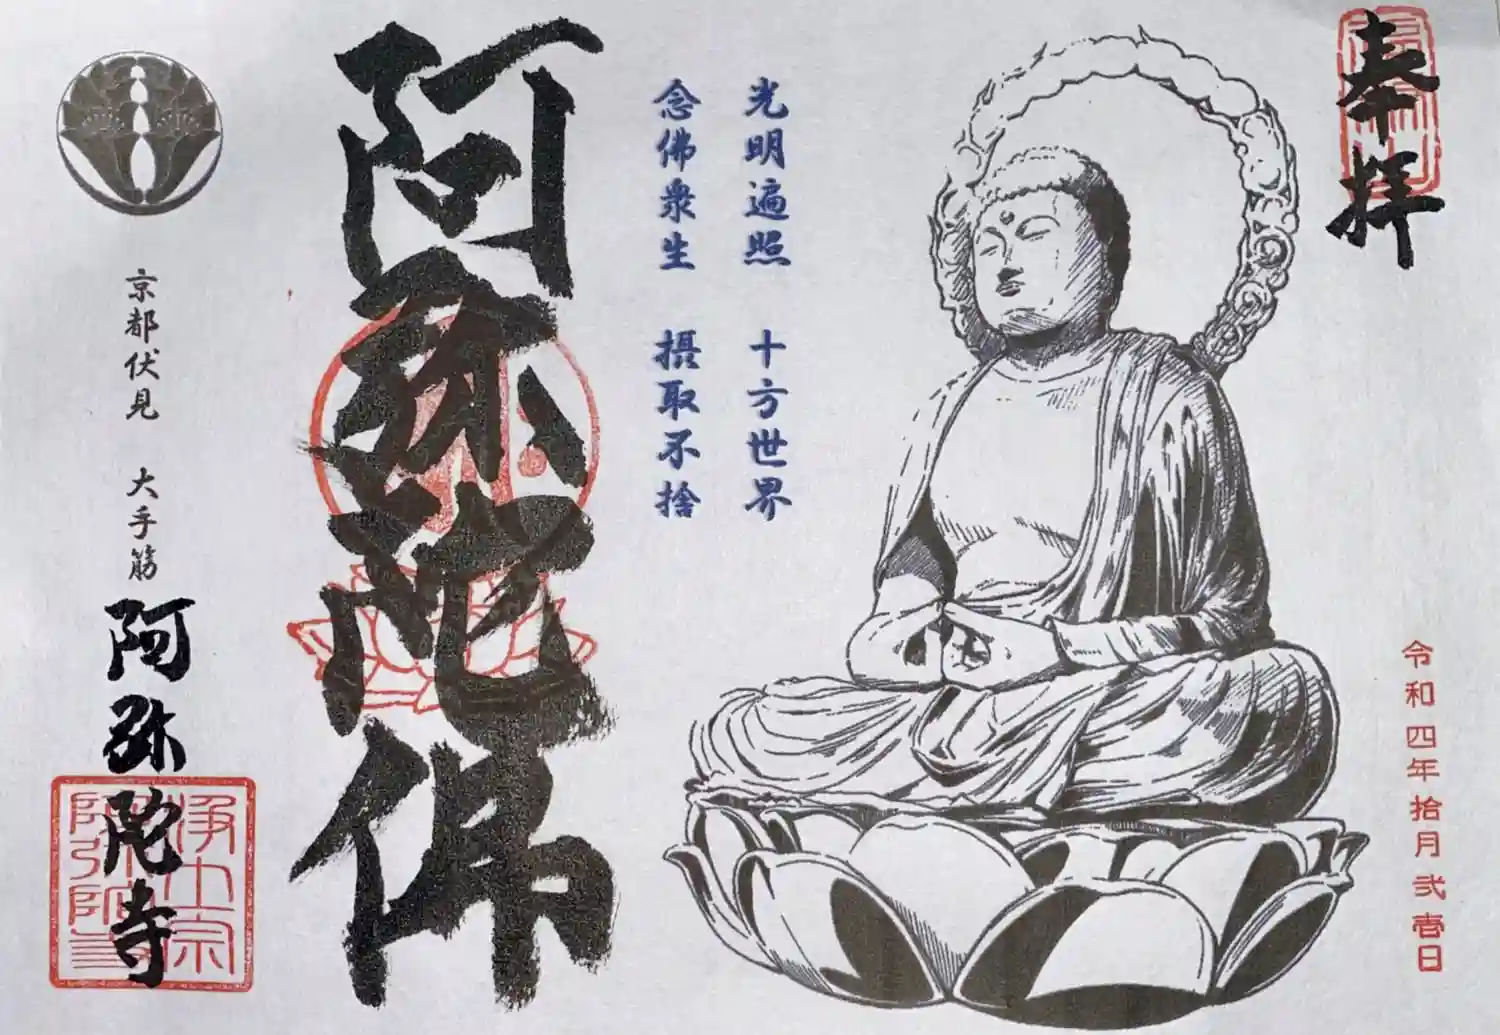 奉拝
令和四年拾月弐壱日
光明遍照 十方世界
念佛衆生 摂取不捨
阿弥陀佛
京都伏見 大手筋
阿弥陀寺
浄土宗